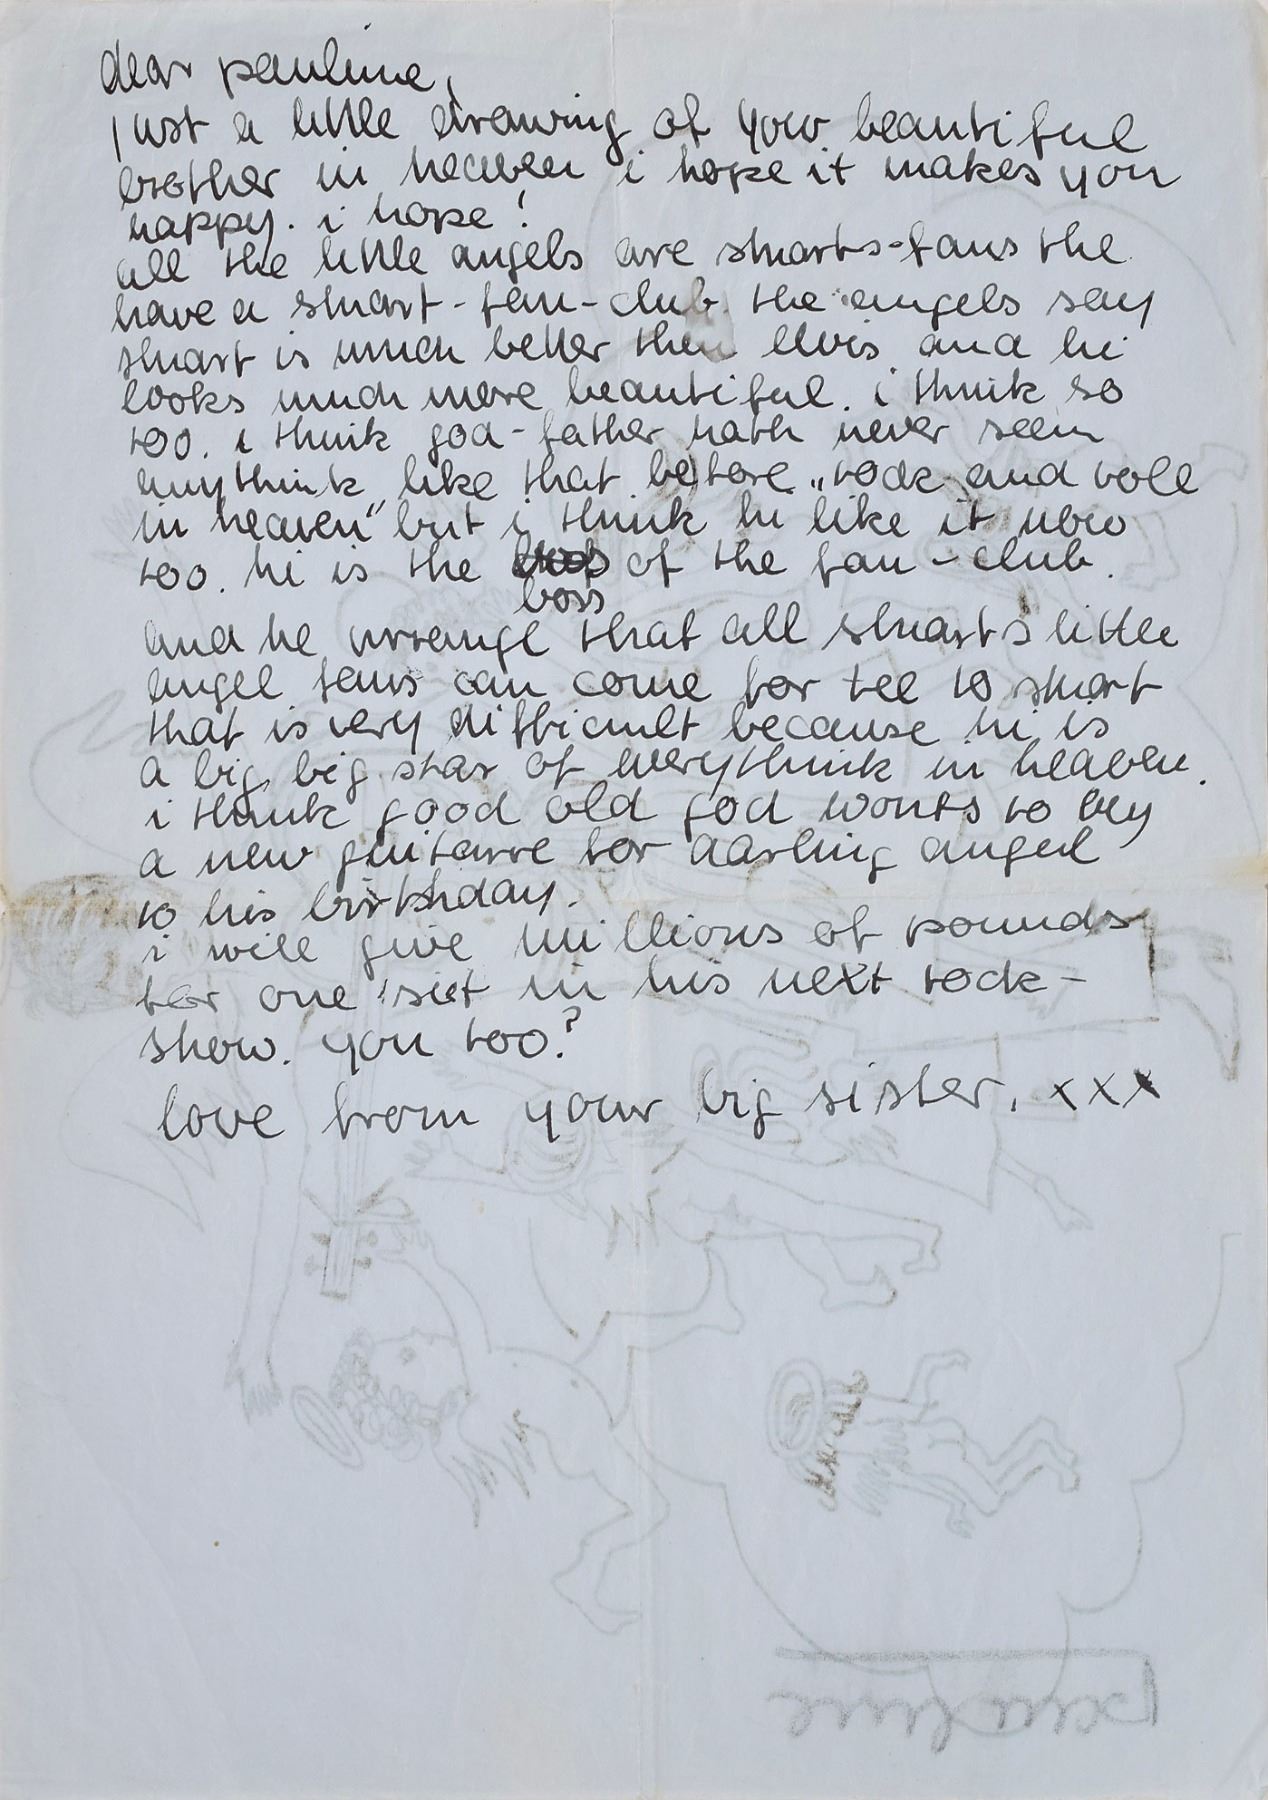 dear pauline,
just a little drawing of your beautiful
brother in heaven i hope it makes you
happy. i hope!
all the little angels are stuarts-fans the
have a stuart-fan-club. the angels say
stuart is much better then elvis and hi
looks much more beautiful. i think so
too. i think god-father hath never seen
anythink like that before „rock and roll
in heaven“ but i think hi like it now
too. hi is the boss of the fan-club.
and he arrange that all stuarts little
angel fans can come for tee to stuart
that is very difficult because hi is
a big big star of everythink in heaven.
i think good old god wonts to buy
a new guitarre for darling angel
to his birthday.
i will give millions of pounds
for one siet in his next rock-
show. you too?
love from your big sister. xxx
pauline